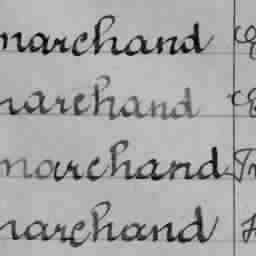 marchand
marchand
marchand
marchand